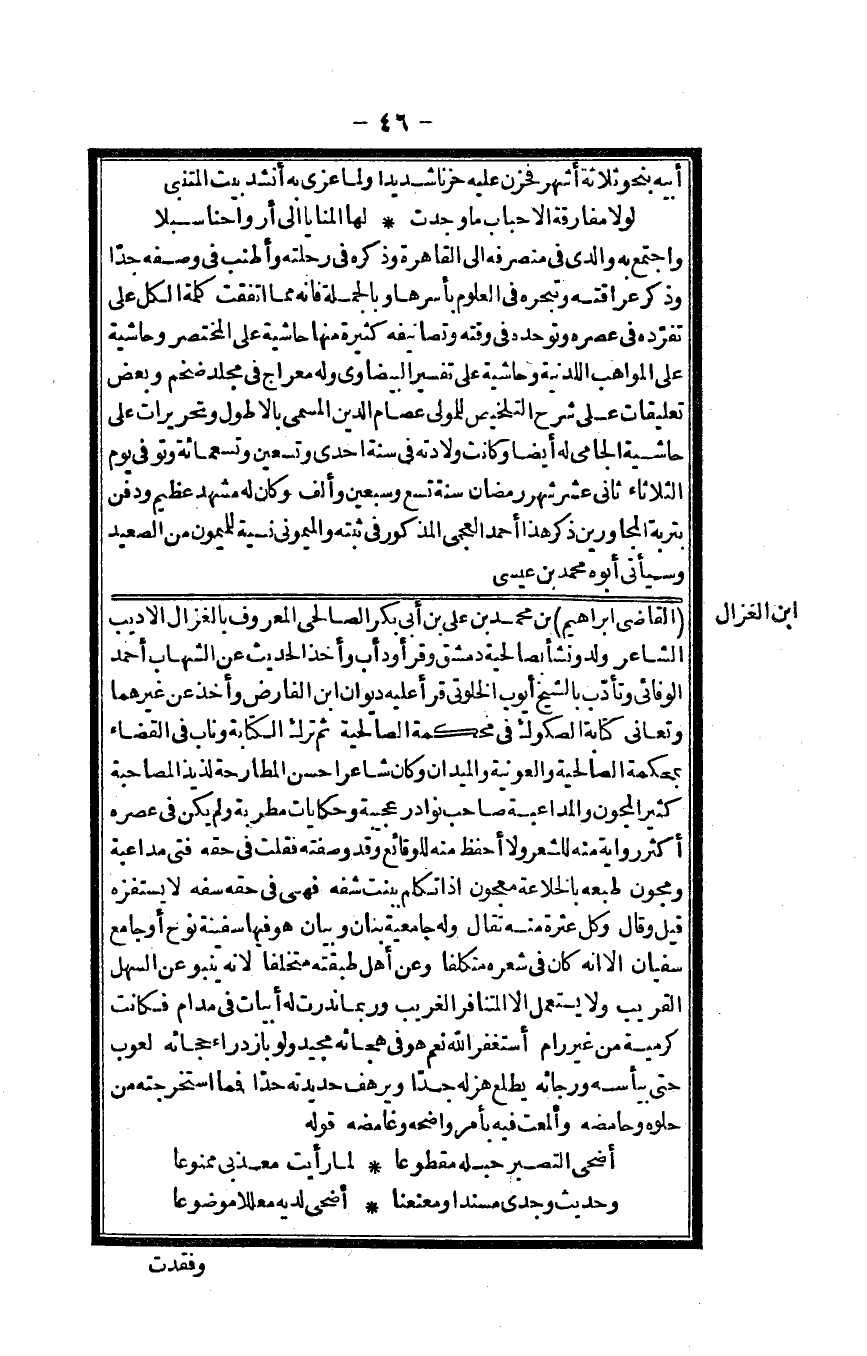 - ٤٦ -
أبيه بنحو ثلاثة أشهر فحزن عليه حزنا شديدا ولما عزى به أنشد بيت المتنبى
لولا مفارقة الاحباب ما وجدت * لها المنايا الى أرواحنا سبلا
واجتمع به والدى فى منصرفه الى القاهرة وذكره فى رحلته وأطنب فى وصفه جدّا
وذكر عراقته وتبحره فى العلوم بأسرها وبالجملة فانه مما اتفقت كلمة الكل على
تفرّده فى عصره وتوحده فى وقته وتصانيفه كثيرة منها حاشية على المختصر وحاشية
على المواهب اللدنية وحاشية على تفسير البيضاوى وله معراج فى مجلد ضخم وبعض
تعليقات على شرح التلخيص للمولى عصام الدين المسمى بالاطول وتحريرات على
حاشية الجامى له أيضا وكانت ولادته فى سنة احدى وتسعين وتسعمائة وتوفى يوم
الثلاثاء ثانى عشر شهر رمضان سنة تسع وسبعين وألف وكان له مشهد عظيم ودفن
بتربة المجاورين ذكر هذا أحمد العجمى المذكور فى ثبته والميمونى نسبة للميمون من الصعيد
وسيأتى أبوه محمد بن عيسى
ابن الغزال
(القاضى ابراهيم) بن محمد بن على بن أبى بكر الصالحى المعروف بالغزال الاديب
الشاعر ولد ونشأ بصالحية دمشق وقرأ ودأب وأخذ الحديث عن الشهاب أحمد
الوفائى وتأدّب بالشيخ أيوب الخلوتى قرأ عليه ديوان ابن الفارض وأخذ عن غيرهما
وتعانى كتابة الصكوك فى محكمة الصالحية ثم ترك الكتابة وناب فى القضاء
بمحكمة الصالحية والعونية والميدان وكان شاعرا حسن المطارحة لذيذ المصاحبة
كثير المجون والمداعبة صاحب نوادر عجيبة وحكايات مطربة ولم يكن فى عصره
أكثر رواية منه للشعر ولا أحفظ منه للوقائع وقد وصفته فقلت فى حقه فتى مداعبة
ومجون طبعه بالخلاعة معجون اذا تكلم ببنت شفه فهى فى حقه سفه لا يستفزه
قيل وقال وكل عثرة منه تقال وله جامعية بنان وبيان هو فيها سفينة نوح أو جامع
سفيان الا انه كان فى شعره متكلفا وعن أهل طبقته متخلفا لانه ينبو عن السهل
القريب ولا يستعمل الا المتنافر الغريب وربما ندرت له أبيات فى مدام فكانت
كرمية من غير رام أستغفر الله نعم هو فى هجائه مجيد ولو بازدراء حجائه لعوب
حتى بيأسه ورجائه يطلع هزله جدّا ويرهف حديدته حدّا فما استخرجته من
حلوه وحامضه وألمعت فيه بأمر واضحه وغامضه قوله
أضحى التصبر حبله مقطوعا * لما رأيت معذبى ممنوعا
وحديث وجدى مسندا ومعنعنا * أضحى لديه معللا موضوعا
وفقدت